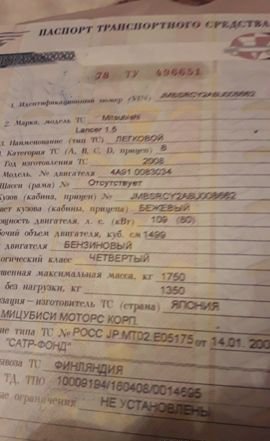 ПАСПОРТ ТРАНСПОРТНОГО СРЕДСТВА
78 ТУ 496651
1. Идентификационный номер (VIN) JMBSRCY2ABU008662
2. Марка, модель ТС Mitsubishi
Lancer 1,5
3. Наименование (тип ТС) ЛЕГКОВОЙ
Категория ТС (A, B, C, D, прицеп) B
Год изготовления ТС 2008
Модель, № двигателя 4A91 0083034
Шасси (рама) № Отсутствует
Кузов (кабина, прицеп) № JMBSRCY2ABU008662
вет кузова (кабины, прицепа) БЕЖЕВЫЙ
щность двигателя, л. с. (кВт) 109 (80)
бочий объем двигателя, куб. см 1499
двигателя БЕНЗИНОВЫЙ
логический класс ЧЕТВЕРТЫЙ
шенная максимальная масса, кг 1750
без нагрузки, кг 1350
зация – изготовитель ТС (страна) ЯПОНИЯ
МИЦУБИСИ МОТОРС КОРП.
ние типа ТС № РОСС JP.MT02.E05175 от 14.01.200
"САТР-ФОНД"
ывоза ТС ФИНЛЯНДИЯ
ТД, ТПО 10009194/160408/0014695
ные ограничения НЕ УСТАНОВЛЕНЫ